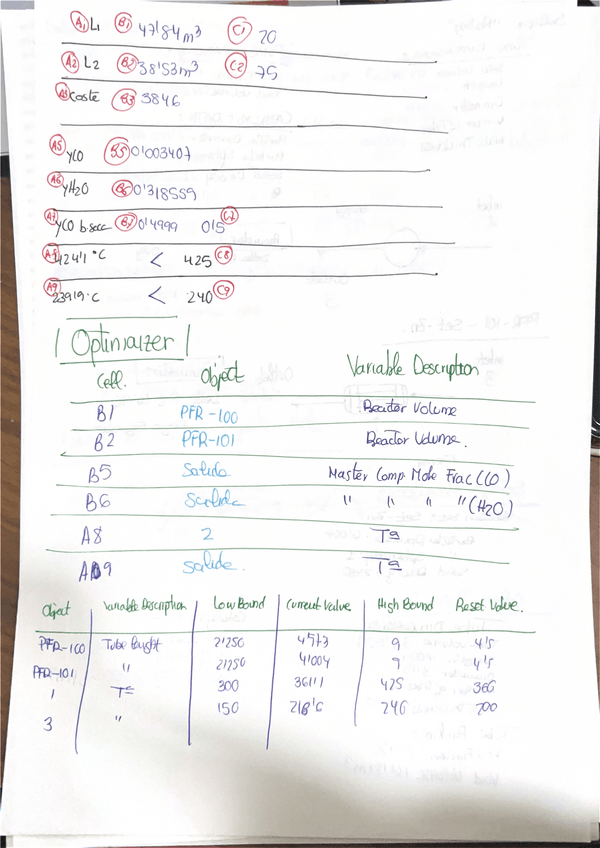 A1 L1 B1 47'84 m³ C1 20
A2 L2 B2 38'53 m³ C2 75
A3 coste B3 3846
A5 yCO B5 0'003407
A6 yH2O B6 0'318559
A7 yCO b.seca B7 0'4999 0'5 C7
A8 424'1 °C < 425 C8
A9 239'9 °C < 240 C9
| Optimiaizer |
Cell. Object Variable Description
B1 PFR-100 Reactor Volume
B2 PFR-101 Reactor Volume.
B5 Salida Master Comp Mole Frac (CO)
B6 Salida " " " " (H2O)
A8 2 Tª
A9 Salida. Tª
Object Variable Description Low Bound Current Value High Bound Reset Value.
PFR-100 Tube Lenght 2'250 4'573 9 4'5
PFR-101 " 2'250 4'004 9 4'5
1 Tª 300 361'1 425 360
3 " 150 216'6 240 200